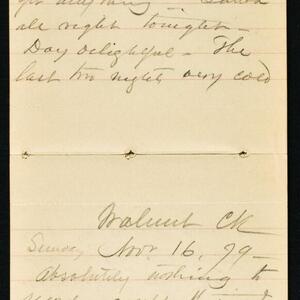 all right tonight -
Day delightful - The
last two nights very cold
Walnut Ck
Sunday Nov. 16, 79 -
Absolutely nothing to